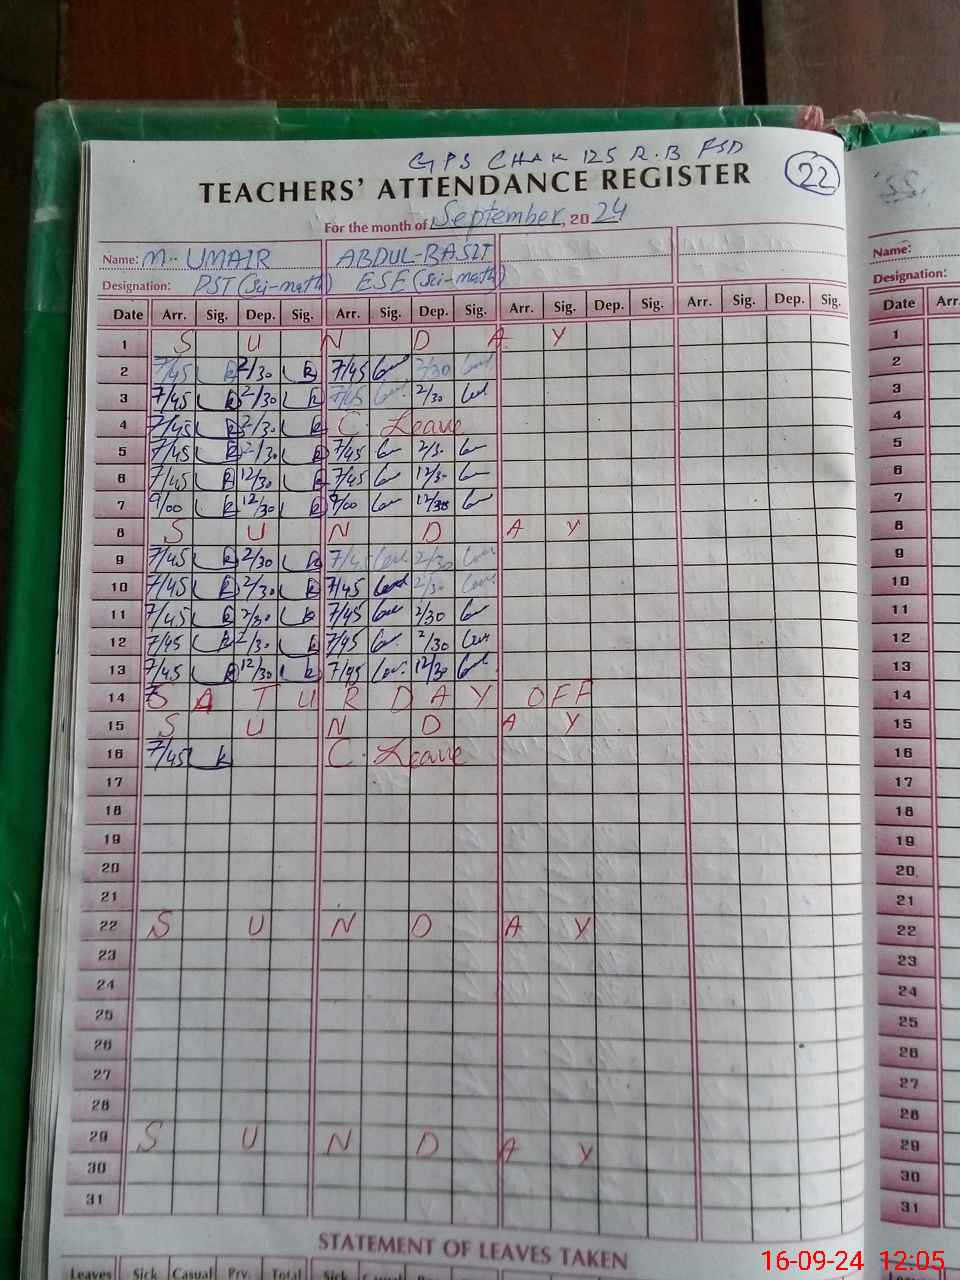 GPS CHAK 125 R.B FSD
TEACHERS' ATTENDANCE REGISTER 22
For the month of September, 2024
Name: M. UMAIR ABDUL-BASIT
Designation: PST (Sci-math) ESE (Sci-math)
Date Arr. Sig. Dep. Sig. Arr. Sig. Dep. Sig. Arr. Sig. Dep. Sig. Arr. Sig. Dep. Sig.
1 S U N D A Y
2 7/45 2/30 7/45 2/30
3 7/45 2/30 7/45 2/30
4 7/45 2/30 C. Leave
5 7/45 2/30 7/45 2/30
6 7/45 12/30 7/45 12/30
7 9/00 12/30 9/00 12/30
8 S U N D A Y
9 7/45 2/30 7/45 2/30
10 7/45 2/30 7/45 2/30
11 7/45 2/30 7/45 2/30
12 7/45 2/30 7/45 2/30
13 7/45 12/30 7/45 12/30
14 S A T U R D A Y OFF
15 S U N D A Y
16 7/45 C. Leave
17
18
19
20
21
22 S U N D A Y
23
24
25
26
27
28
29 S U N D A Y
30
31
STATEMENT OF LEAVES TAKEN
Leaves Sick Casual Prv. Total Sick Casual Prv. Total
Name:
Designation:
Date Arr.
1
2
3
4
5
6
7
8
9
10
11
12
13
14
15
16
17
18
19
20
21
22
23
24
25
26
27
28
29
30
31
16-09-24 12:05